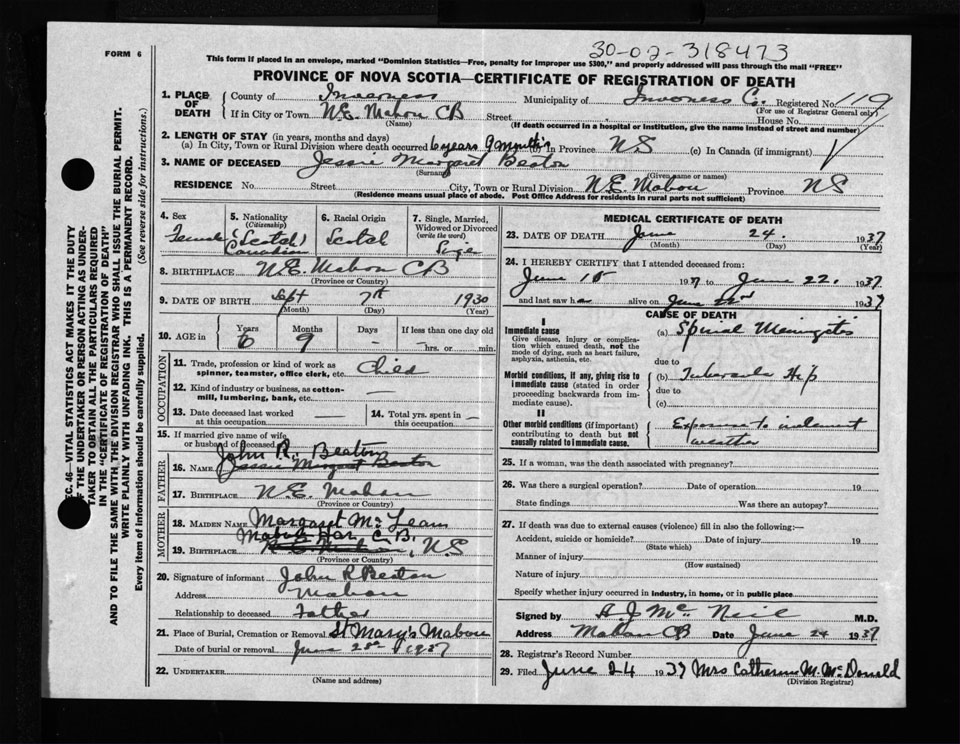 30-02-318473
FORM 6
This form if placed in an envelope, marked "Dominion Statistics—Free, penalty for improper use $300," and properly addressed will pass through the mail "FREE"
PROVINCE OF NOVA SCOTIA—CERTIFICATE OF REGISTRATION OF DEATH
1. PLACE OF DEATH { County of Inverness Municipality of Inverness Co. Registered No. 119
(For use of Registrar General only)
If in City or Town N.E. Mabou CB Street House No.
(Name) (If death occurred in a hospital or institution, give the name instead of street and number)
2. LENGTH OF STAY (in years, months and days)
(a) In City, Town or Rural Division where death occurred 6 years 9 months (b) In Province NS (c) In Canada (if immigrant)
3. NAME OF DECEASED Jessie Margaret Beaton
(Surname) (Given name or names)
RESIDENCE No. Street City, Town or Rural Division N.E. Mabou Province NS
(Residence means usual place of abode. Post Office Address for residents in rural parts not sufficient)
4. Sex 5. Nationality (Citizenship) 6. Racial Origin 7. Single, Married, Widowed or Divorced (write the word)
Female (Scotch) Canadian Scotch
8. BIRTHPLACE N.E. Mabou CB
(Province or Country)
9. DATE OF BIRTH Sept 7th 1930
(Month) (Day) (Year)
10. AGE in Years Months Days If less than one day old
6 9 – hrs. or min.
OCCUPATION
11. Trade, profession or kind of work as spinner, teamster, office clerk, etc. Child
12. Kind of industry or business, as cotton-mill, lumbering, bank, etc. —
13. Date deceased last worked at this occupation — 14. Total yrs. spent in this occupation —
15. If married give name of wife or husband of deceased
FATHER
John R. Beaton
16. Name Jessie Margaret Beaton
17. Birthplace N.E. Mabou
(Province or Country)
MOTHER
18. Maiden Name Margaret McLean
Mabou Har. C.B.
19. Birthplace N.E. Mabou, N.S
(Province or Country)
20. Signature of informant John R Beaton
Address Mabou
Relationship to deceased Father
21. Place of Burial, Cremation or Removal St Mary's Mabou
Date of burial or removal June 1937
22. UNDERTAKER
(Name and address)
MEDICAL CERTIFICATE OF DEATH
23. DATE OF DEATH June 24. 1937
(Month) (Day) (Year)
24. I HEREBY CERTIFY that I attended deceased from:
June 15 1937 to June 22, 1937
and last saw h alive on June 22nd 1937
CAUSE OF DEATH
I
Immediate cause (a) Spinal Meningitis
Give disease, injury or complication which caused death, not the mode of dying, such as heart failure, asphyxia, asthenia, etc.
due to
Morbid conditions, if any, giving rise to immediate cause (stated in order proceeding backwards from immediate cause).
(b) Tubercular Hip
due to
(c)
II
Other morbid conditions (if important) contributing to death but not causally related to immediate cause.
Exposure to inclement weather
25. If a woman, was the death associated with pregnancy?
26. Was there a surgical operation? Date of operation 19
State findings Was there an autopsy?
27. If death was due to external causes (violence) fill in also the following:—
Accident, suicide or homicide? Date of injury 19
(State which)
Manner of injury
(How sustained)
Nature of injury
Specify whether injury occurred in industry, in home, or in public place
Signed by A J McNeil M.D.
Address Mabou CB Date June 24 1937
28. Registrar's Record Number
29. Filed June 24 1937 Mrs Catherine M. McDonald
(Division Registrar)
SEC. 46—VITAL STATISTICS ACT MAKES IT THE DUTY
OF THE UNDERTAKER OR PERSON ACTING AS UNDER-
TAKER TO OBTAIN ALL THE PARTICULARS REQUIRED
IN THE "CERTIFICATE OF REGISTRATION OF DEATH"
AND TO FILE THE SAME WITH THE DIVISION REGISTRAR WHO SHALL ISSUE THE BURIAL PERMIT.
WRITE PLAINLY WITH UNFADING INK. THIS IS A PERMANENT RECORD.
Every item of information should be carefully supplied. (See reverse side for instructions.)